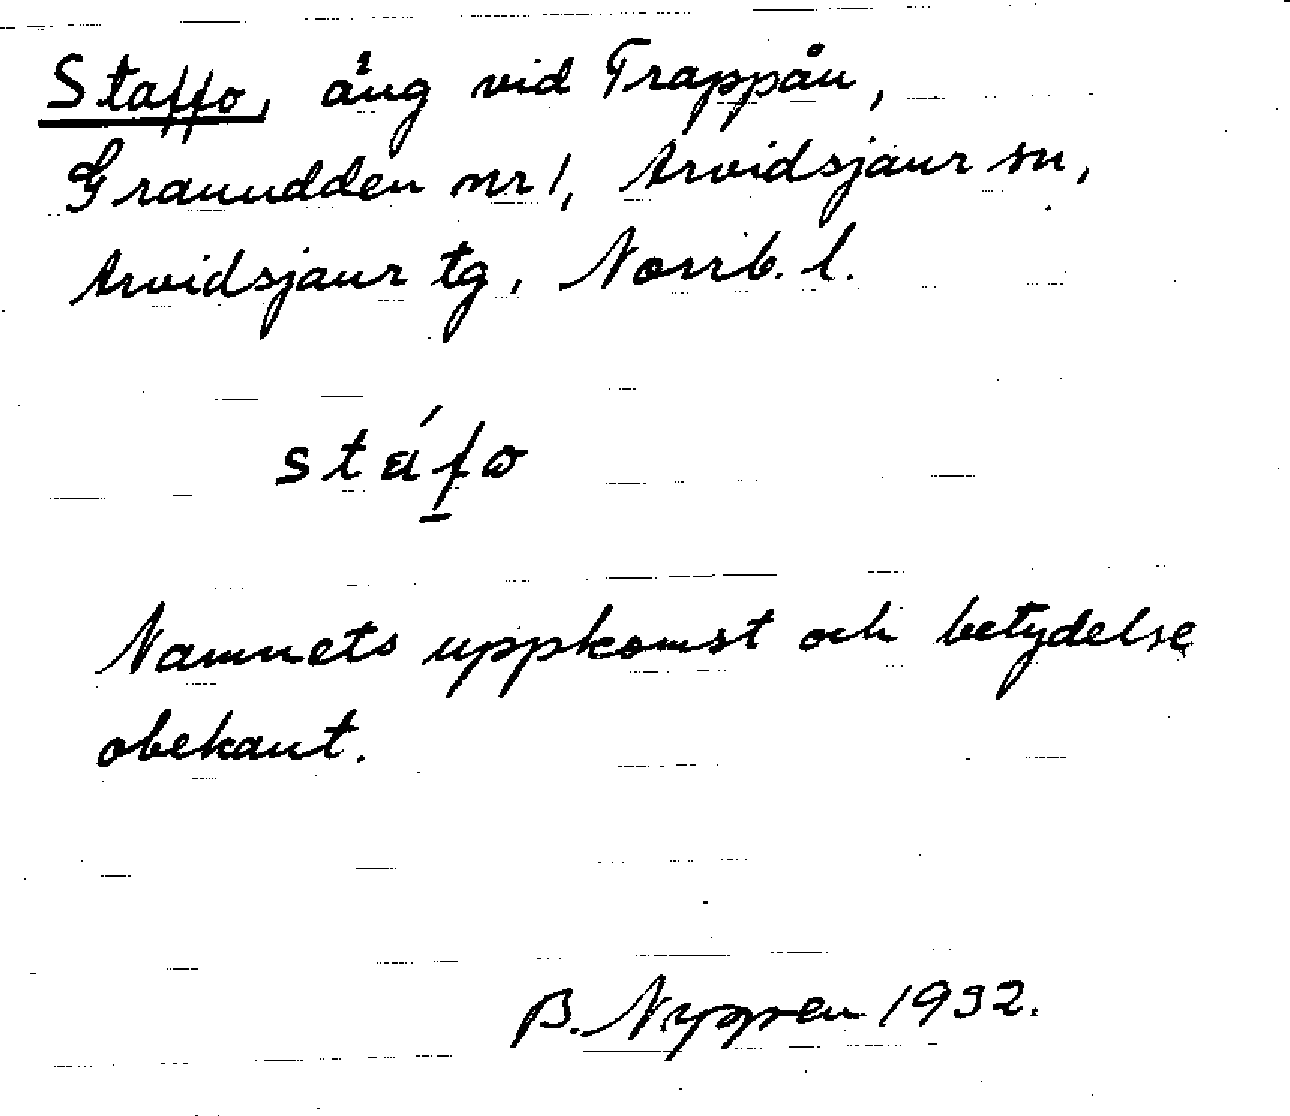 Staffo, äng vid Trappån,
Granudden nr 1, Arvidsjaur sn,
Arvidsjaur tg, Norrb. l.
stáfo
Namnets uppkomst och betydelse
obekant.
B. 1932.